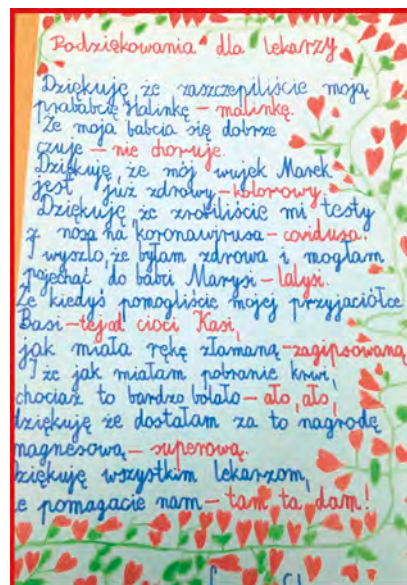 Podziękowania dla lekarzy
Dziękuję że zaszczepiliście moją
prababcię Halinkę – malinkę.
Że moja babcia się dobrze
czuje – nie choruje.
Dziękuję, że mój wujek Marek
jest już zdrowy – kolorowy.
Dziękuję że zrobiliście mi testy
z nosa na koronawirusa – covidusa.
I wyszło, że byłam zdrowa i mogłam
pojechać do babci Marysi – lalysi.
Że kiedyś pomogliście mojej przyjaciółce
Basi – tej od cioci Kasi,
jak miała rękę złamaną – zagipsowaną
I że jak miałam pobranie krwi,
chociaż to bardzo bolało – ało, ało,
dziękuję że dostałam za to nagrodę
magnesową – superową.
ziękuję wszystkim lekarzom,
e pomagacie nam – tam ta dam!